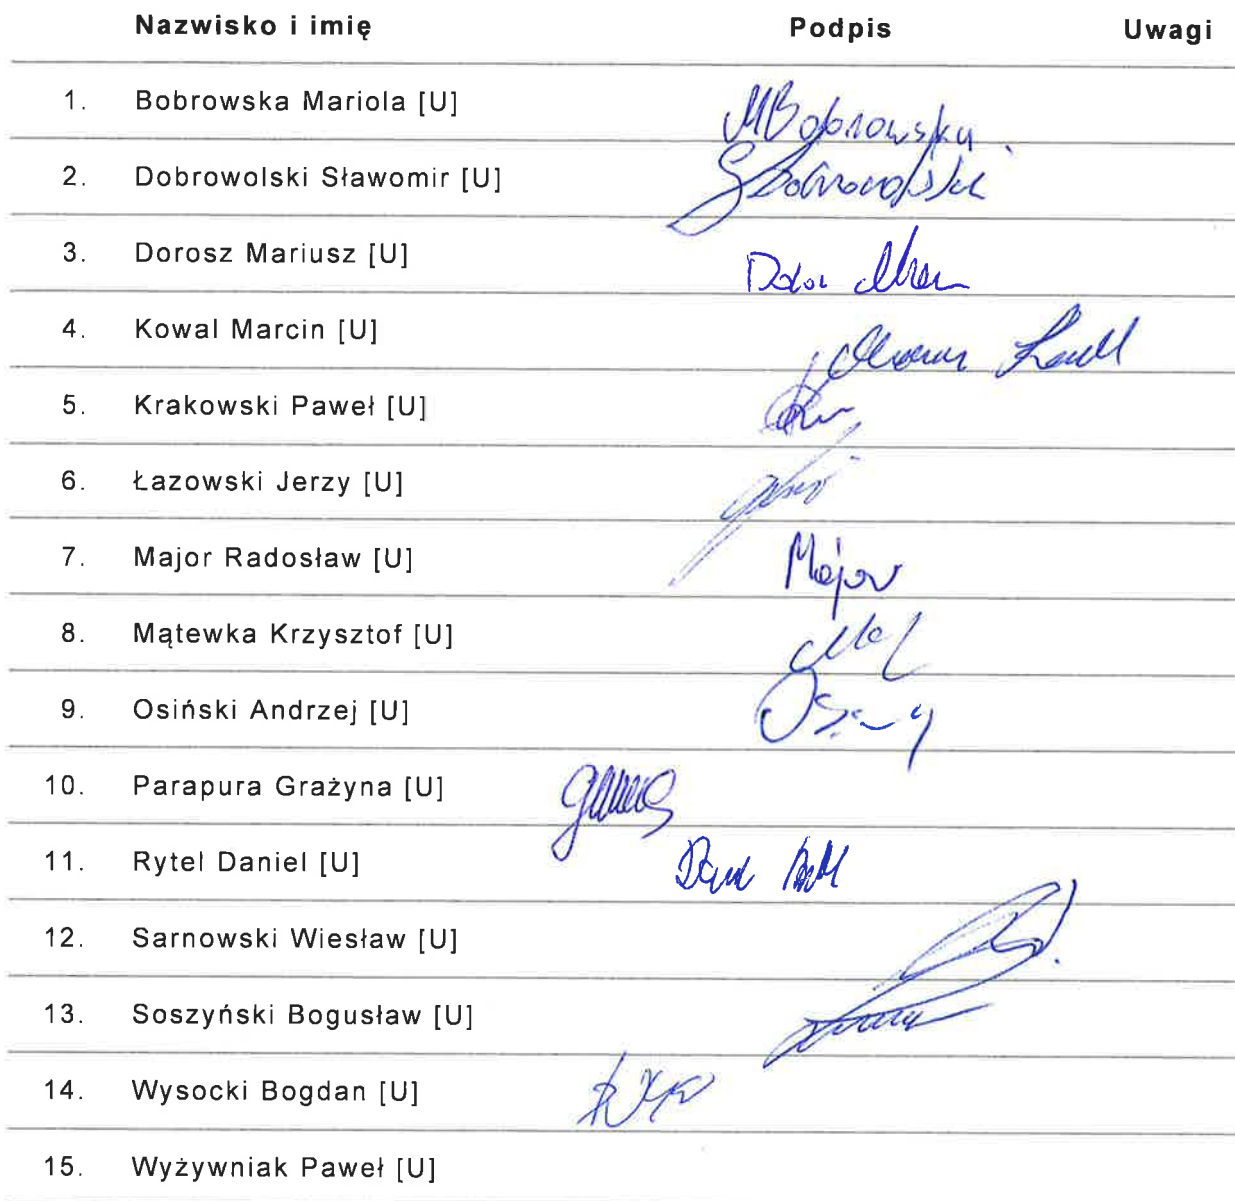 Nazwisko i imię Podpis Uwagi
1. Bobrowska Mariola [U] MBobrowska.
2. Dobrowolski Sławomir [U] SDobrowolski
3. Dorosz Mariusz [U]
4. Kowal Marcin [U]
5. Krakowski Paweł [U]
6. Łazowski Jerzy [U]
7. Major Radosław [U] Major
8. Mątewka Krzysztof [U]
9. Osiński Andrzej [U]
10. Parapura Grażyna [U]
11. Rytel Daniel [U]
12. Sarnowski Wiesław [U]
13. Soszyński Bogusław [U]
14. Wysocki Bogdan [U]
15. Wyżywniak Paweł [U]